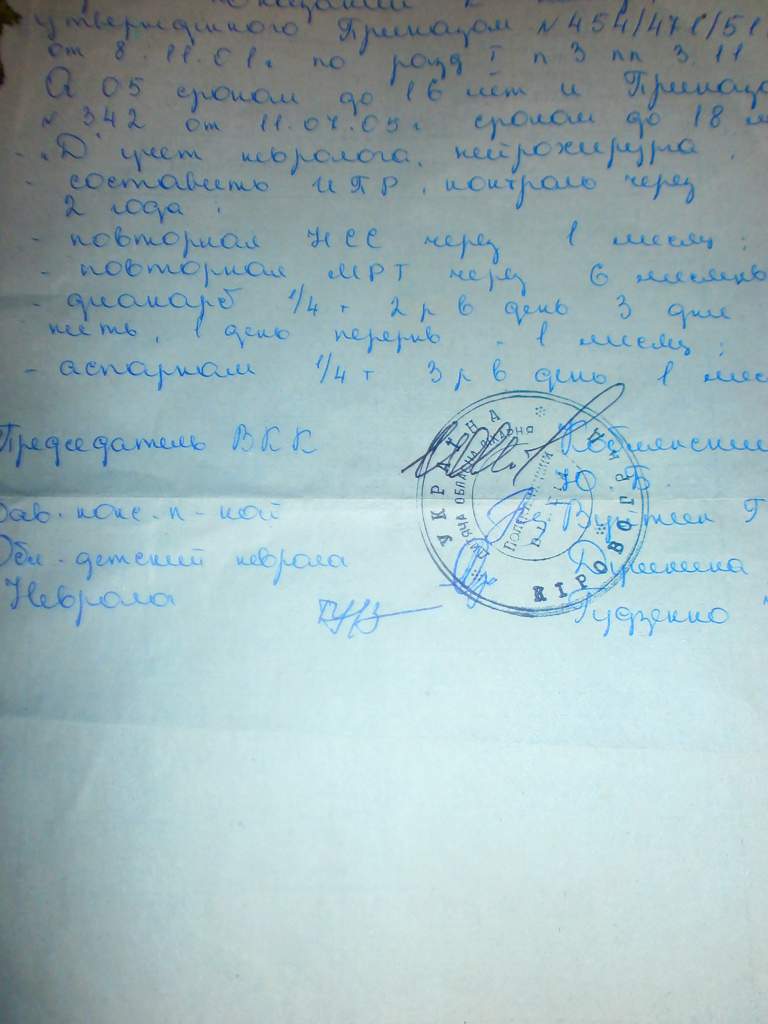 показаний к
утвержденного Приказом №454/471/51
от 8.11.01г по разд I п 3 пп 3.11
А 05 сроком до 16 лет и Приказо
№ 342 от 11.07.05г. сроком до 18 л
- "Д" учет невролога, нейрохирурга,
- составить ИПР, контроль через
2 года;
- повторная НСГ через 1 месяц;
- повторная МРТ через 6 месяцев
- диакарб 1/4 т 2 р в день 3 дня
пить, 1 день перерыв - 1 месяц;
- аспаркам 1/4 т 3 р в день 1 мес
Председатель ВКК
Ю.Б.
Зав. конс. п-кой
Обл. детский невролог
Невролог Гудзенко
УКРАЇНА
КІРОВОГРАД
ДИТЯЧА ОБЛАСНА ЛІКАРНЯ